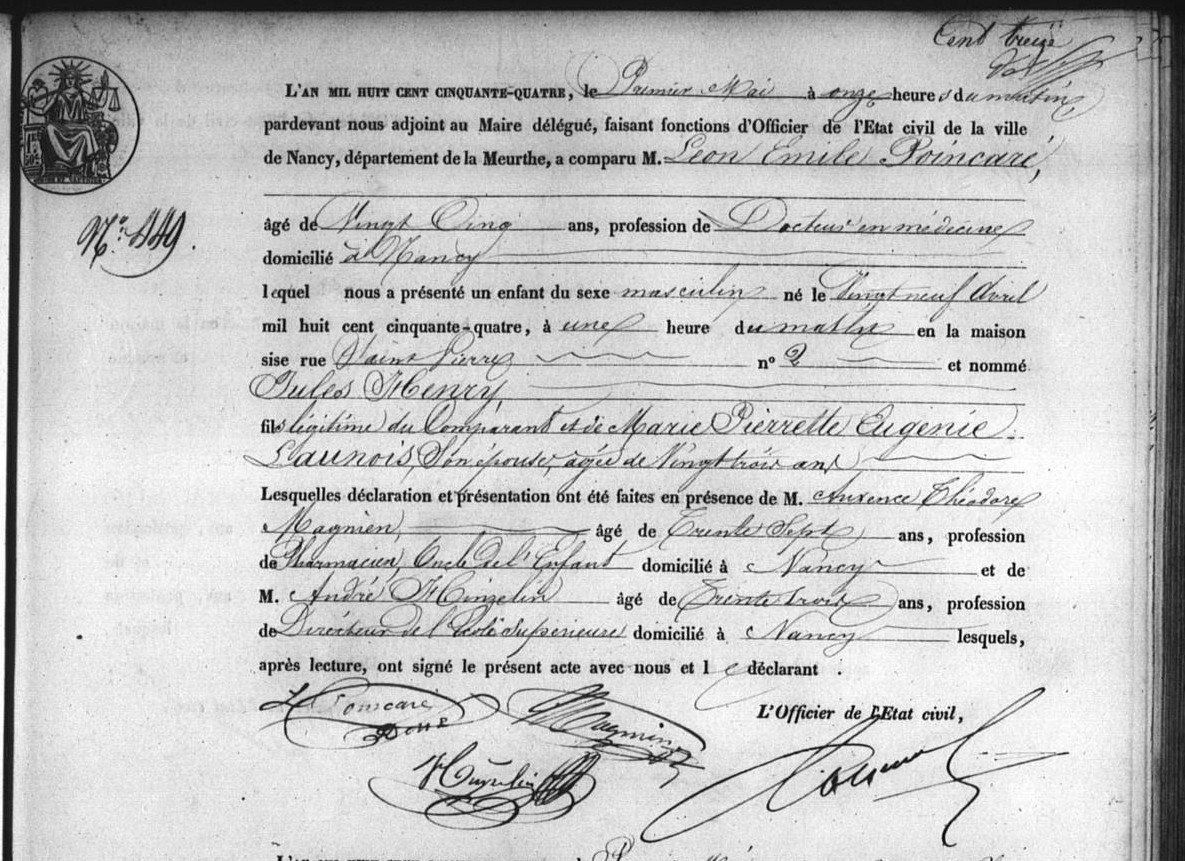 Cent treize
L'AN MIL HUIT CENT CINQUANTE-QUATRE, le Premier Mai à onze heures du matin
pardevant nous adjoint au Maire délégué, faisant fonctions d'Officier de l'Etat civil de la ville
de Nancy, département de la Meurthe, a comparu M. Léon Emile Poincaré,
N.° 449.
âgé de Vingt Cinq ans, profession de Docteur en médecine
domicilié à Nancy
lequel nous a présenté un enfant du sexe masculin né le Vingt neuf Avril
mil huit cent cinquante-quatre, à une heure du matin en la maison
sise rue Saint Pierre n° 2 et nommé
Jules Henry,
fils légitime du Comparant et de Marie Pierrette Eugénie
Launois, Son épouse, agée de Vingt trois ans
Lesquelles déclaration et présentation ont été faites en présence de M. Auxence Théodore
Magnien, âgé de Trente Sept ans, profession
de Pharmacien, Oncle de l'Enfant domicilié à Nancy et de
M. André Hinzelin âgé de Trente trois ans, profession
de Directeur de l'Ecole Supérieure domicilié à Nancy lesquels,
après lecture, ont signé le présent acte avec nous et le déclarant .
Poincaré
Magnien
L'Officier de l'Etat civil,
Hinzelin